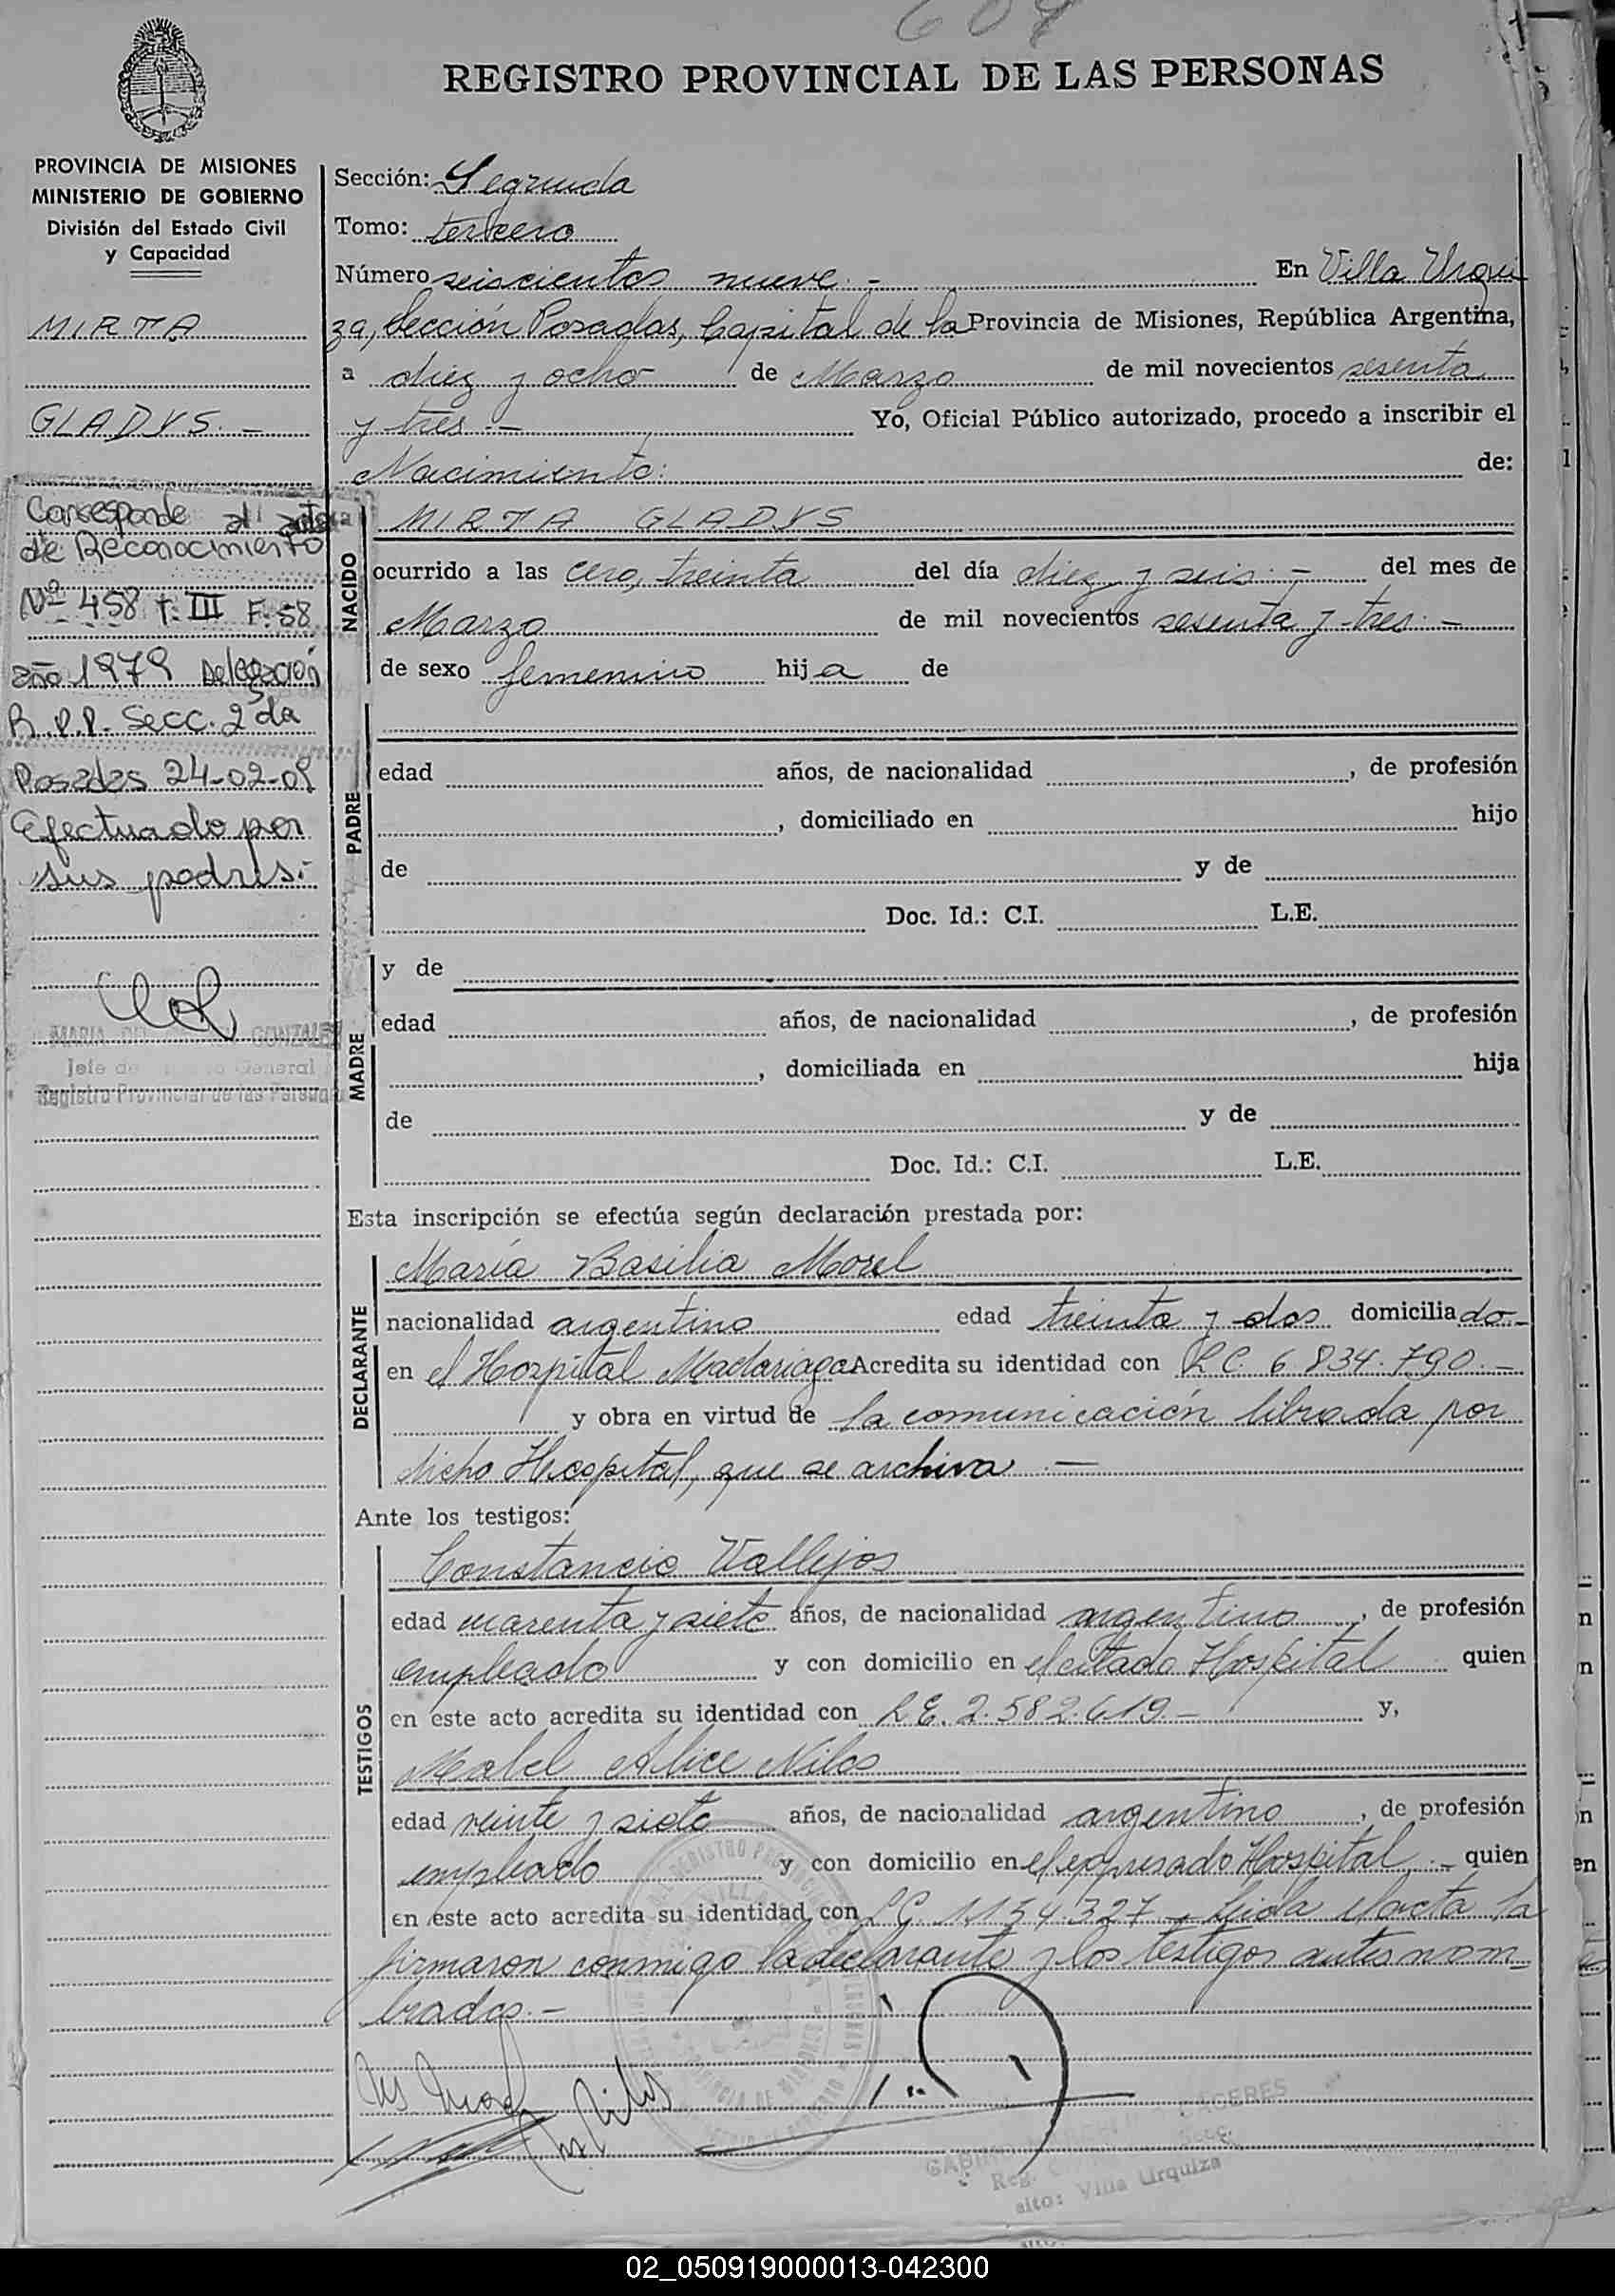 REGISTRO PROVINCIAL DE LAS PERSONAS
PROVINCIA DE MISIONES
MINISTERIO DE GOBIERNO
División del Estado Civil
y Capacidad
MIRTA
GLADYS. -
Corresponde al acta
de Reconocimiento
Nº 458 T. III F. 58
año 1979 Delegación
R.P.P. Secc. 2da
Posadas 24-02-09
Efectuado por
sus padres.-
GONZALEZ
Jefe de General
Registro Provincial de las Personas
Sección: Segunda
Tomo: tercero
Número seiscientos nueve. - En Villa Urqui
za, Sección Posadas, Capital de la Provincia de Misiones, República Argentina,
a diez y ocho de Marzo de mil novecientos sesenta
y tres - Yo, Oficial Público autorizado, procedo a inscribir el
Nacimiento: de:
NACIDO
MIRTA GLADYS
ocurrido a las cero, treinta del día diez y seis. - del mes de
Marzo de mil novecientos sesenta y tres. -
de sexo femenino hija de
PADRE
edad años, de nacionalidad , de profesión
, domiciliado en hijo
de y de
Doc. Id.: C.I. L.E.
y de
MADRE
edad años, de nacionalidad , de profesión
, domiciliada en hija
de y de
Doc. Id.: C.I. L.E.
Esta inscripción se efectúa según declaración prestada por:
DECLARANTE
María Basilia Morel
nacionalidad argentino edad treinta y dos domiciliado-
en el Hospital Madariaga Acredita su identidad con L.C. 6.834.790. -
y obra en virtud de la comunicación librada por
dicho Hospital, que se archiva. -
Ante los testigos:
TESTIGOS
Constancio Vallejos
edad cuarenta y siete años, de nacionalidad argentino, de profesión
empleado y con domicilio en el citado Hospital quien
en este acto acredita su identidad con L.E. 2.582.619. - y,
Mabel Alice Nilos
edad veinte y siete años, de nacionalidad argentino, de profesión
empleado y con domicilio en el expresado Hospital. - quien
en este acto acredita su identidad con L.C. 1154.327 - Leída el acta la
firmaron conmigo la declarante y los testigos antes nom-
brados. -
Villa Urquiza
02_050919000013-042300